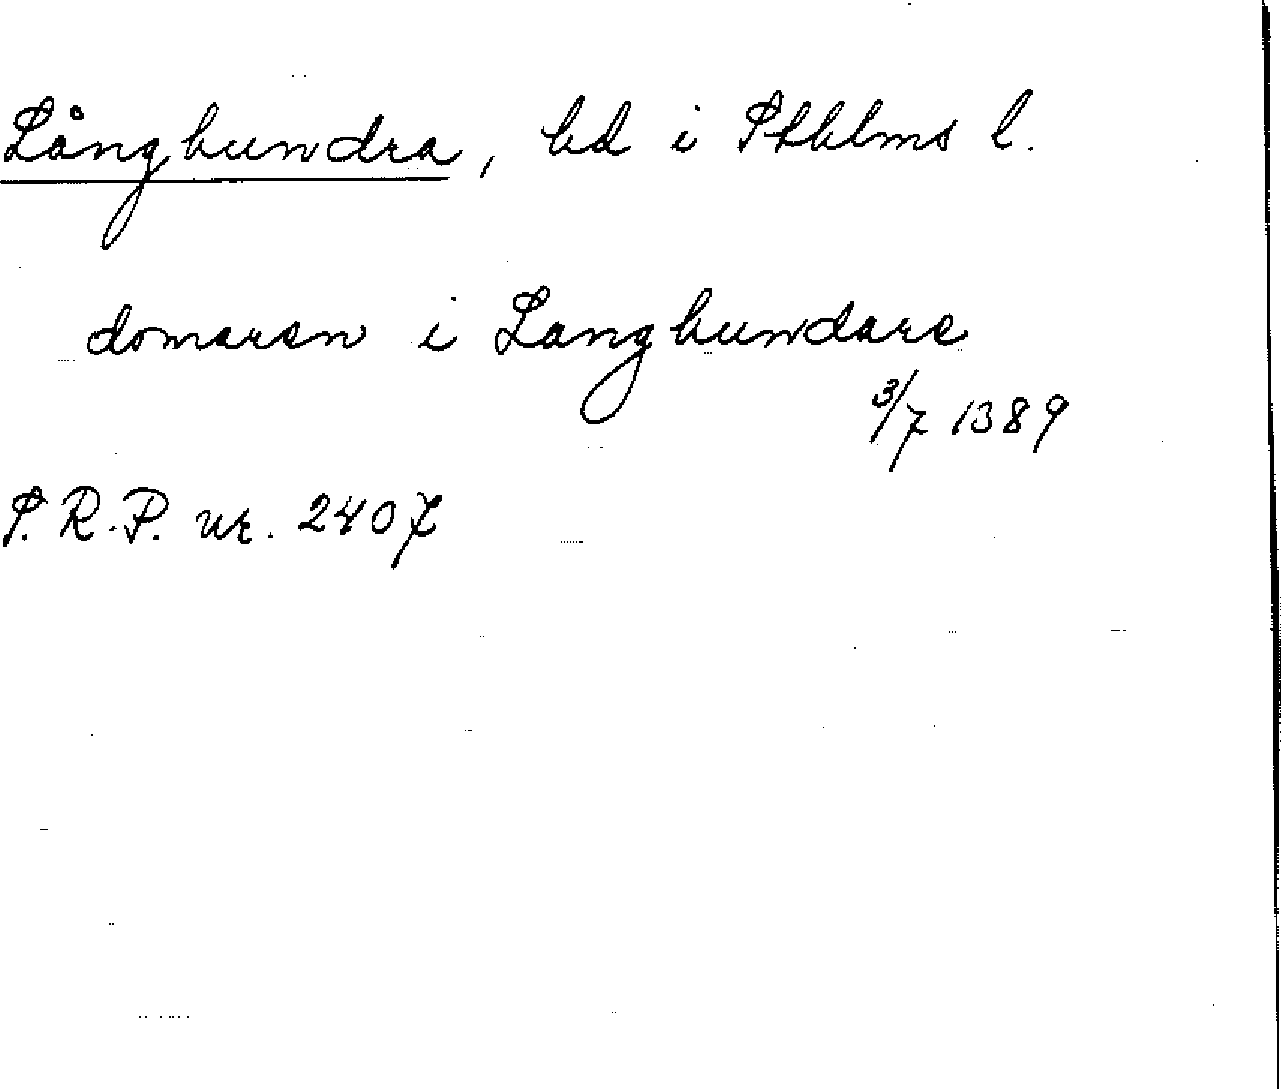 Långhundra, hd i Sthlms l.
domaren i Langhundare
3/7 1389
S.R.P. nr. 2407